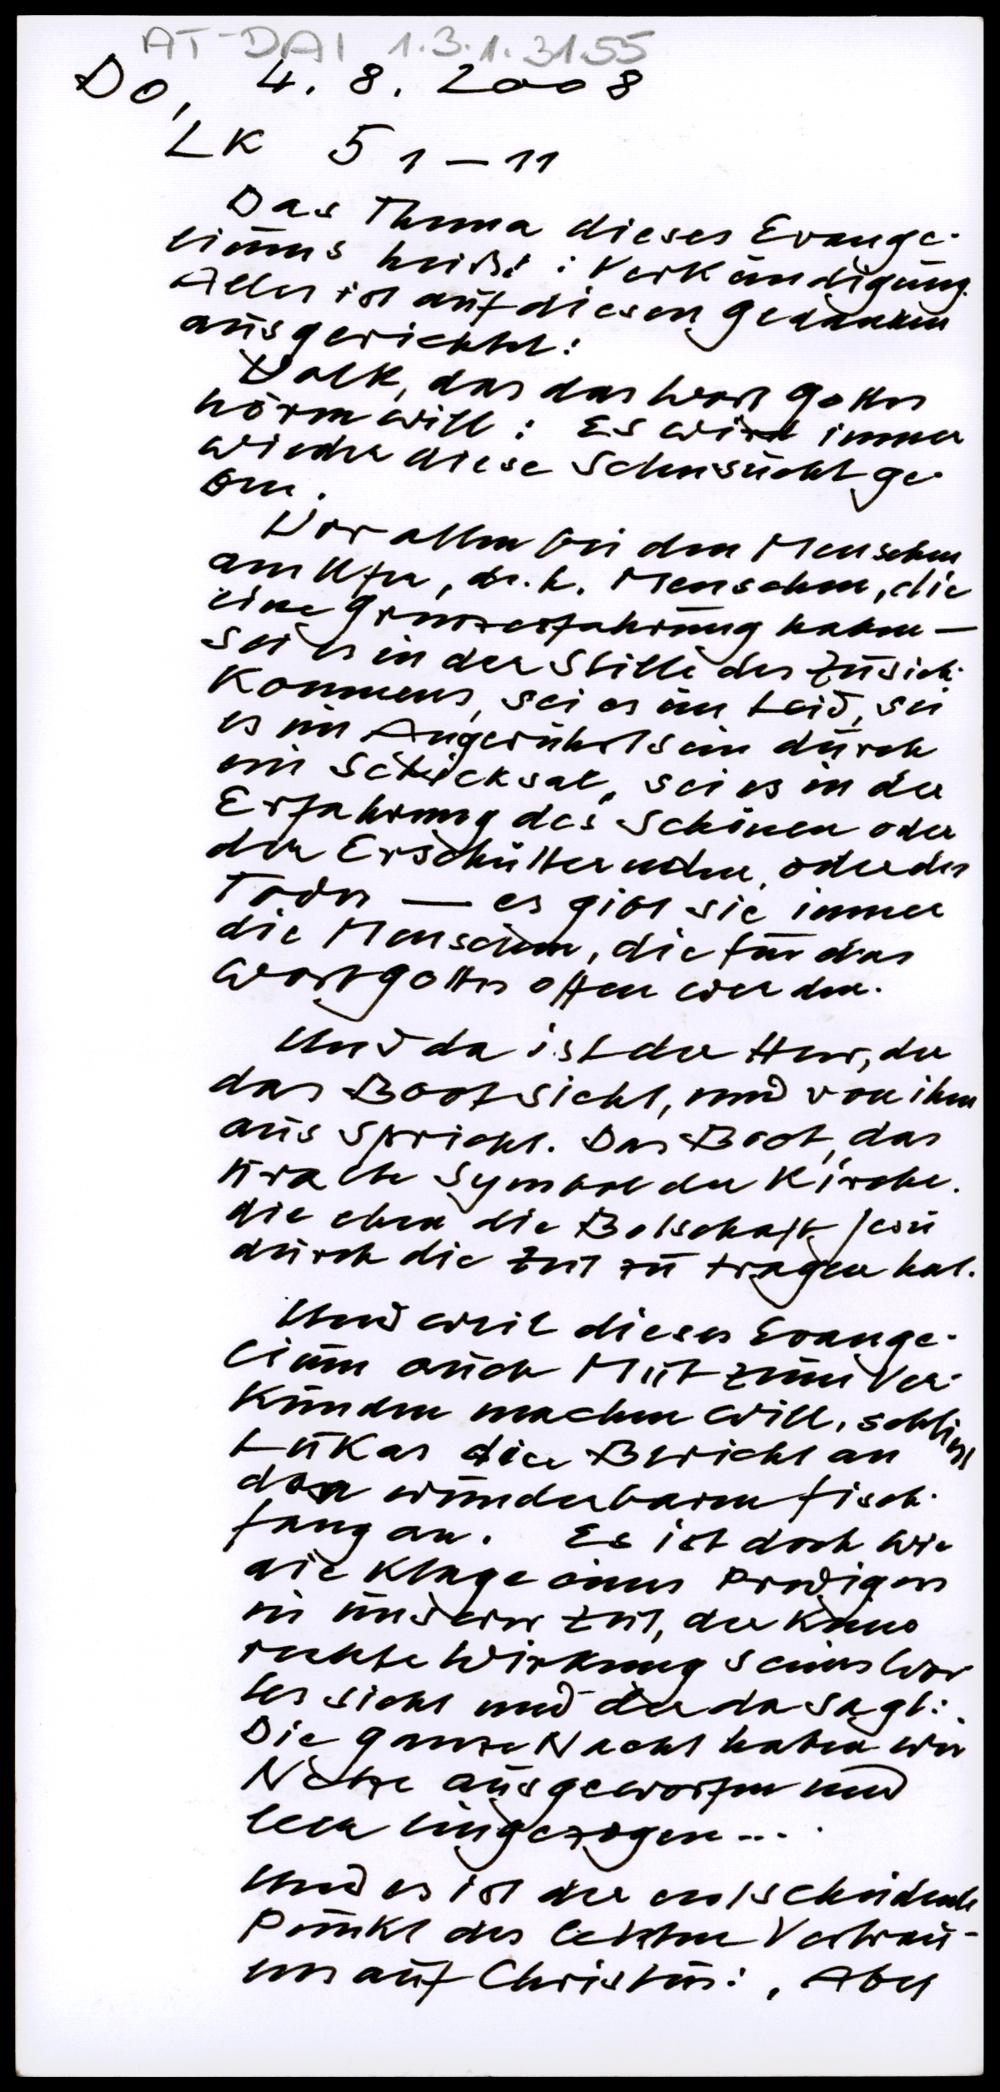 AT-DAI 1.3.1.31.55
Do, 4. 8. 2008
LK 5 1 – 11
Das Thema dieses Evange-
liums heißt: Verkündigung.
Alles ist auf diesen Gedanken
ausgerichtet:
Volk, das das Wort Gottes
hören will: Es wird immer
wieder diese Sehnsucht ge-
ben.
Vor allem bei den Menschen
am Ufer, d.h. Menschen, die
eine Grenzerfahrung haben –
sei es in der Stille des Zusich-
Kommens, sei es im Leid, sei
es im Angerührtsein durch
ein Schicksal, sei es in der
Erfahrung des Schönen oder
des Erschütternden, oder des
Todes — es gibt sie immer
die Menschen, die für das
Wort Gottes offen werden.
Und da ist der Herr, der
das Boot sieht, und von ihm
aus spricht. Das Boot, das
uralte Symbol der Kirche.
die eben die Botschaft
durch die Zeit zu tragen hat.
Und weil dieses Evange-
lium auch Mut zum Ver-
künden machen will, schließt
Lukas die Bericht an
den wunderbaren Fisch-
fang an. Es ist doch wie
die Klage eines Predigers
in unserer Zeit, der keine
rechte Wirkung seines Wor
tes sieht und der da sagt:
Die ganze Nacht haben wir
Netze ausgeworfen und
leer eingezogen...
Und es ist der entscheidende
Punkt des letzten Vertrau-
ens auf Christus: , Aber